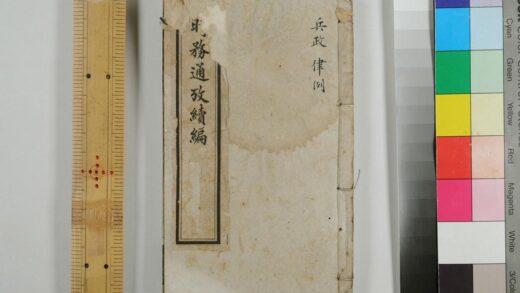 兵政 律例
時務通攷續編
Cyan
Green
Yellow
Red
Magenta
White
3/Color